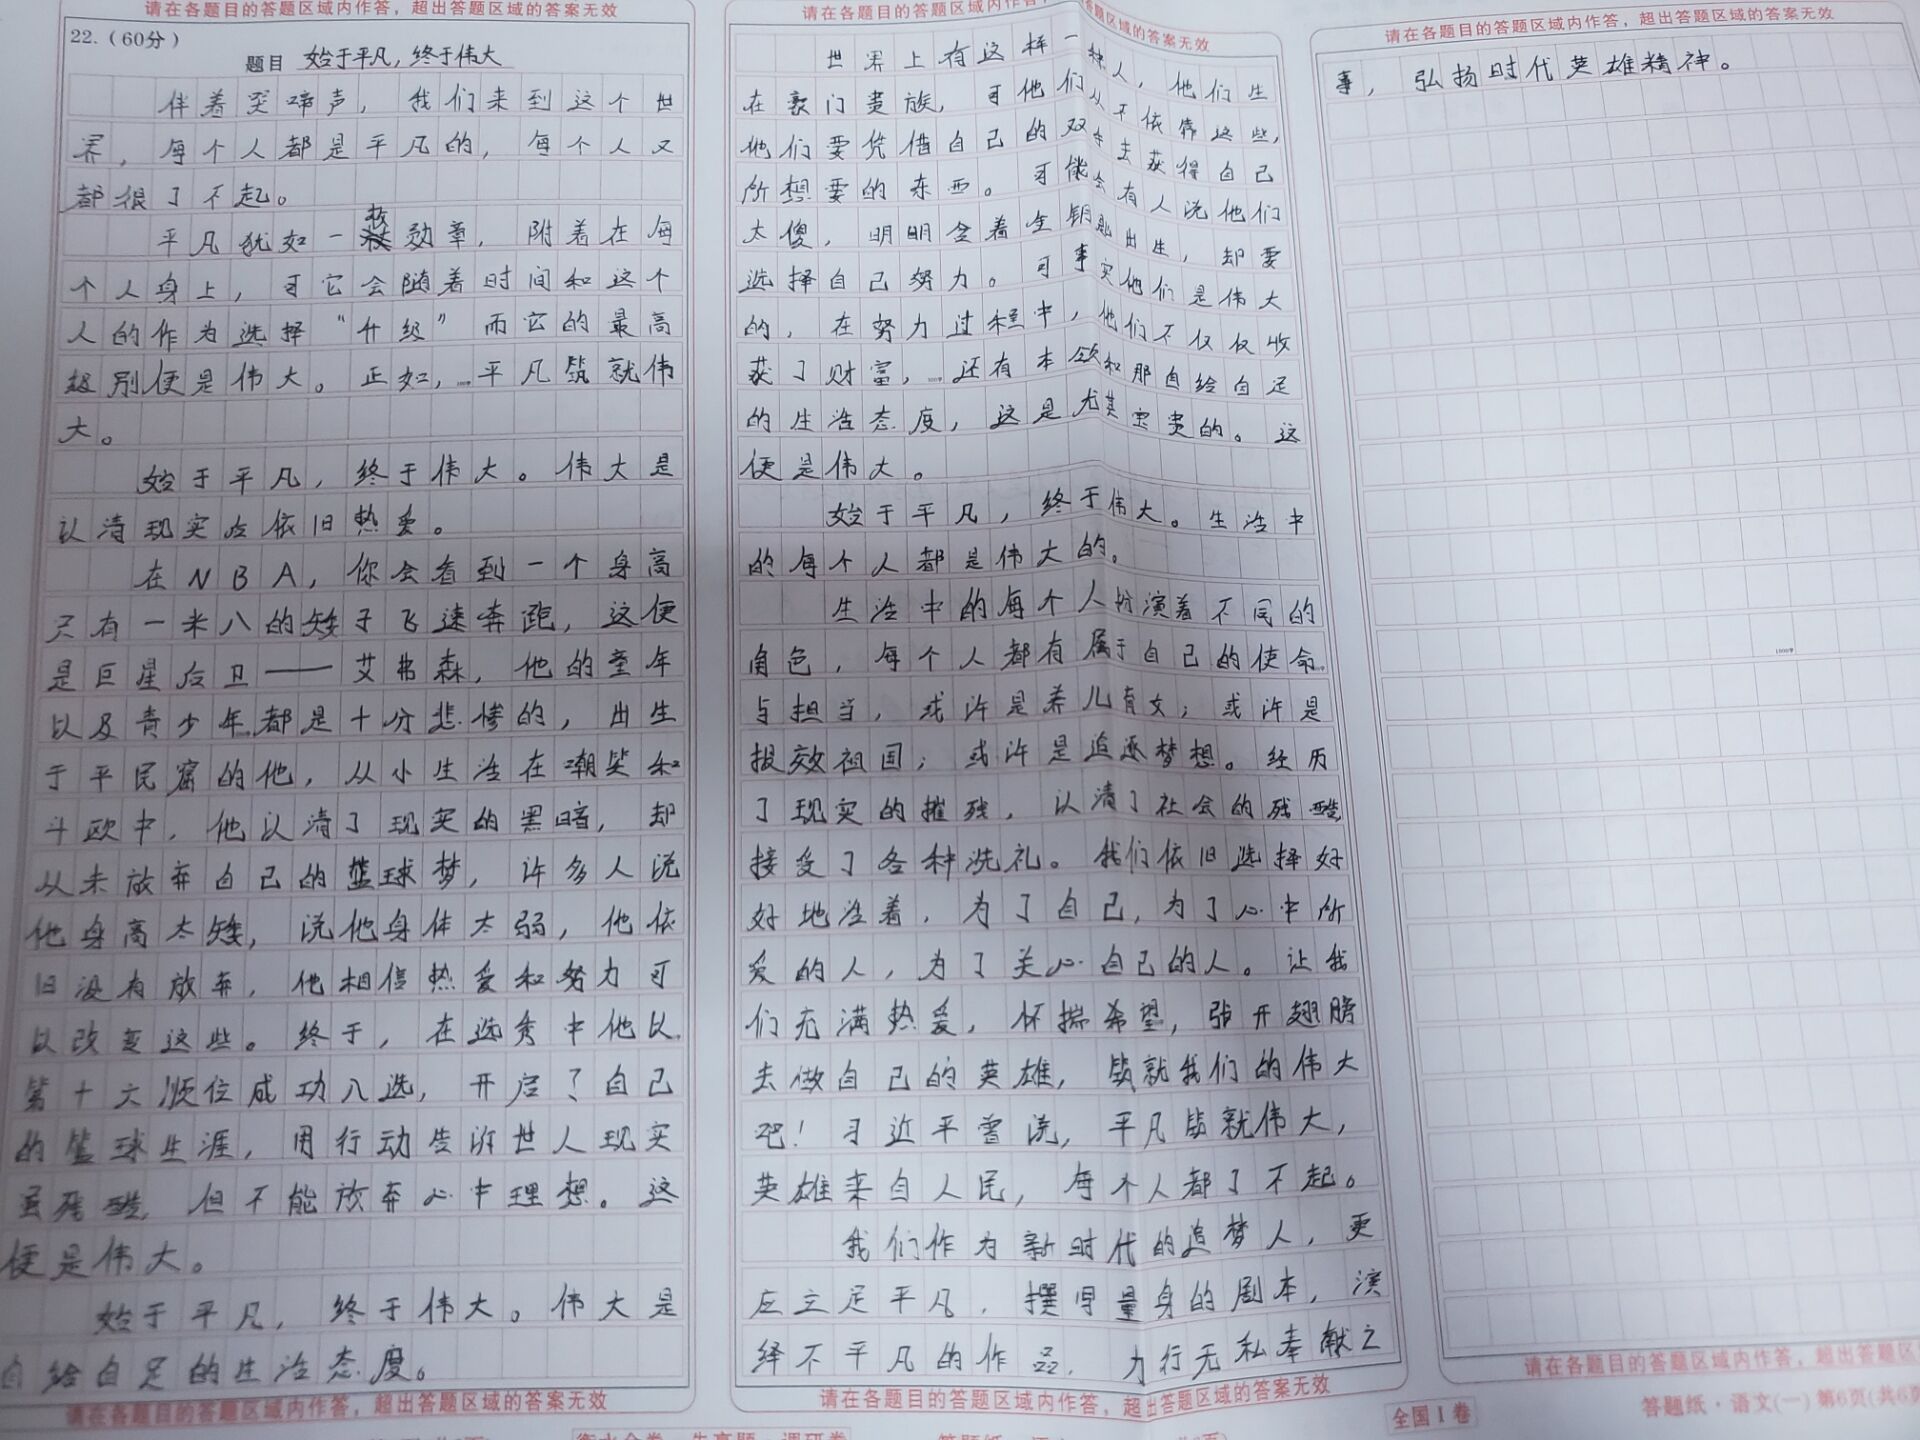 请在各题目的答题区域内作答，超出答题区域的答案无效
22.（60分）
题目 始于平凡，终于伟大
伴着哭啼声，我们来到这个世
界，每个人都是平凡的，每个人又
都很了不起。
平凡犹如一枚勋章，附着在每
个人身上，可它会随着时间和这个
人的作为选择“升级”而它的最高
级别便是伟大。正如，平凡铸就伟
大。
始于平凡，终于伟大。伟大是
认清现实后依旧热爱。
在NBA，你会看到一个身高
只有一米八的矮子飞速奔跑，这便
是巨星后卫——艾弗森，他的童年
以及青少年都是十分悲惨的，出生
于平民窟的他，从小生活在嘲笑和
斗欧中，他认清了现实的黑暗，却
从未放弃自己的篮球梦，许多人说
他身高太矮，说他身体太弱，他依
旧没有放弃，他相信热爱和努力可
以改变这些。终于，在选秀中他以
第十六顺位成功入选，开启了自己
的篮球生涯，用行动告诉世人现实
虽残酷，但不能放弃心中理想。这
便是伟大。
始于平凡，终于伟大。伟大是
自给自足的生活态度。
请在各题目的答题区域内作答，超出答题区域的答案无效
请在各题目的答题区域内作答，超出答题区域的答案无效
世界上有这样一种人，他们生
在豪门贵族，可他们从不依靠这些，
他们要凭借自己的双手去获得自己
所想要的东西。可能会有人说他们
太傻，明明含着金钥匙出生，却要
选择自己努力。可事实他们是伟大
的，在努力过程中，他们不仅仅收
获了财富，还有本领和那自给自足
的生活态度，这是尤其宝贵的。这
便是伟大。
始于平凡，终于伟大。生活中
的每个人都是伟大的。
生活中的每个人扮演着不同的
角色，每个人都有属于自己的使命
与担当，或许是养儿育女；或许是
报效祖国；或许是追逐梦想。经历
了现实的摧残，认清了社会的残酷，
接受了各种洗礼。我们依旧选择好
好地活着，为了自己，为了心中所
爱的人，为了关心自己的人。让我
们充满热爱，怀揣希望，张开翅膀
去做自己的英雄，铸就我们的伟大
吧！习近平曾说，平凡铸就伟大，
英雄来自人民，每个人都了不起。
我们作为新时代的追梦人，更
应立足平凡，撰写量身的剧本，演
绎不平凡的作品，力行无私奉献之
请在各题目的答题区域内作答，超出答题区域的答案无效
请在各题目的答题区域内作答，超出答题区域的答案无效
事，弘扬时代英雄精神。
1000字
请在各题目的答题区域内作答，超出答题区
全国Ⅰ卷
答题纸·语文(一) 第6页(共6页